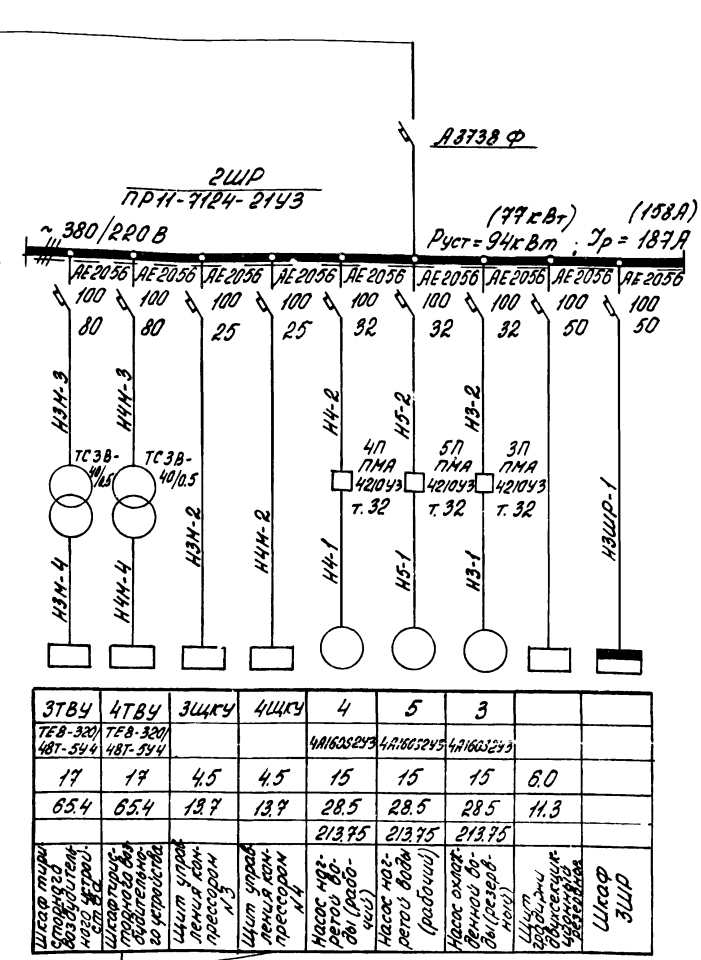 А3738 Ф
2ШР
ПР11-7124-21У3
~ 380/220 В
(77кВт)
(158А)
Руст = 94кВт ; Iр = 187А
АЕ2056 АЕ2056 АЕ2056 АЕ2056 АЕ2056 АЕ2056 АЕ2056 АЕ2056 АЕ2056
100 100 100 100 100 100 100 100 100
80 80 25 25 32 32 32 50 50
Н3М-3 Н4М-3 Н4-2 Н5-2 Н3-2
ТСЗВ-
40/0.5
ТСЗВ-
40/0.5
4П
ПМА
4210У3
т. 32
5П
ПМА
4210У3
т. 32
3П
ПМА
4210У3
т. 32
Н3М-4 Н4М-4 Н3М-2 Н4М-2 Н4-1 Н5-1 Н3-1 Н3ШР-1
3ТВУ 4ТВУ 3ЩКУ 4ЩКУ 4 5 3
ТЕ8-320/ ТЕ8-320/
48Т-5У4 48Т-5У4 4А160S2У3 4А160S2У3 4А160S2У3
17 17 4.5 4.5 15 15 15 6.0
65.4 65.4 13.7 13.7 28.5 28.5 28.5 11.3
213.75 213.75 213.75
Шкаф тири-
сторного
возбудитель-
ного устрой-
ства
Шкаф тирис-
торного воз-
будительно-
го устройства
Щит управ-
ления ком-
прессором
№3
Щит управ-
ления ком-
прессором
№4
Насос наг-
ретой во-
ды (рабо-
чий)
Насос наг-
ретой воды
(рабочий)
Насос охлаж-
денной во-
ды (резерв-
ный)
Щит
градирни
двухсекци-
онной
резервная
Шкаф
3ШР